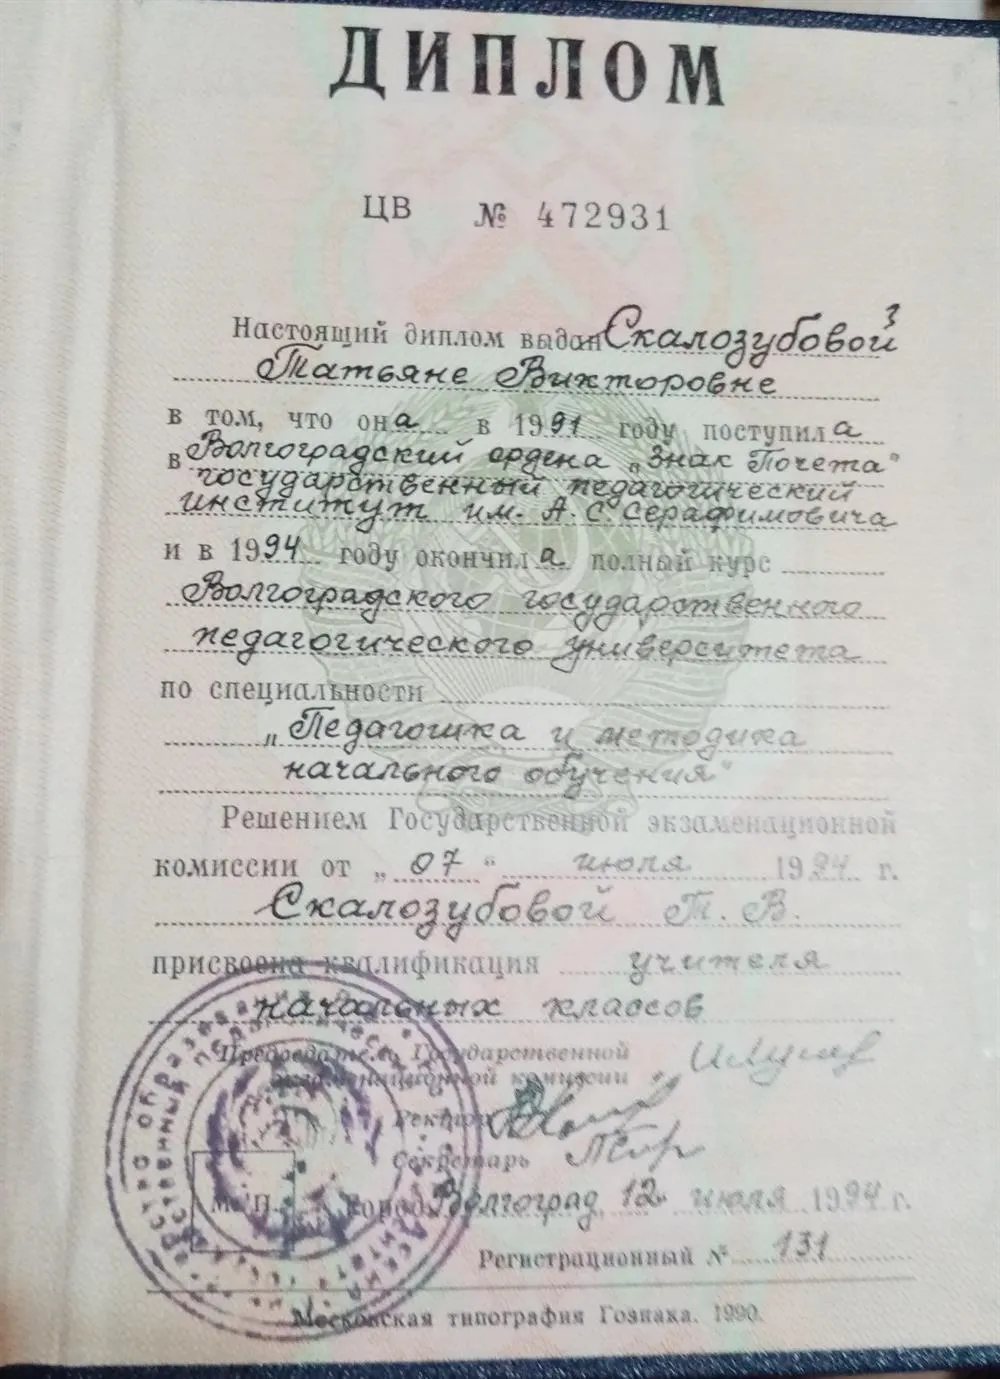 ДИПЛОМ
ЦВ № 472931
Настоящий диплом выдан Скалозубовой
Татьяне Викторовне
в том, что она в 1991 году поступила
в Волгоградский ордена „Знак Почета"
государственный педагогический
институт им. А.С. Серафимовича
и в 1994 году окончила полный курс
Волгоградского государственного
педагогического университета
по специальности
„Педагогика и методика
начального обучения"
Решением Государственной экзаменационной
комиссии от „07" июля 1994 г.
Скалозубовой Т. В.
присвоена квалификация учителя
начальных классов
Председатель Государственной
экзаменационной комиссии
Ректор
Секретарь
М. П. Город Волгоград, 12 июля 1994 г.
Регистрационный № 131
Московская типография Гознака. 1990.